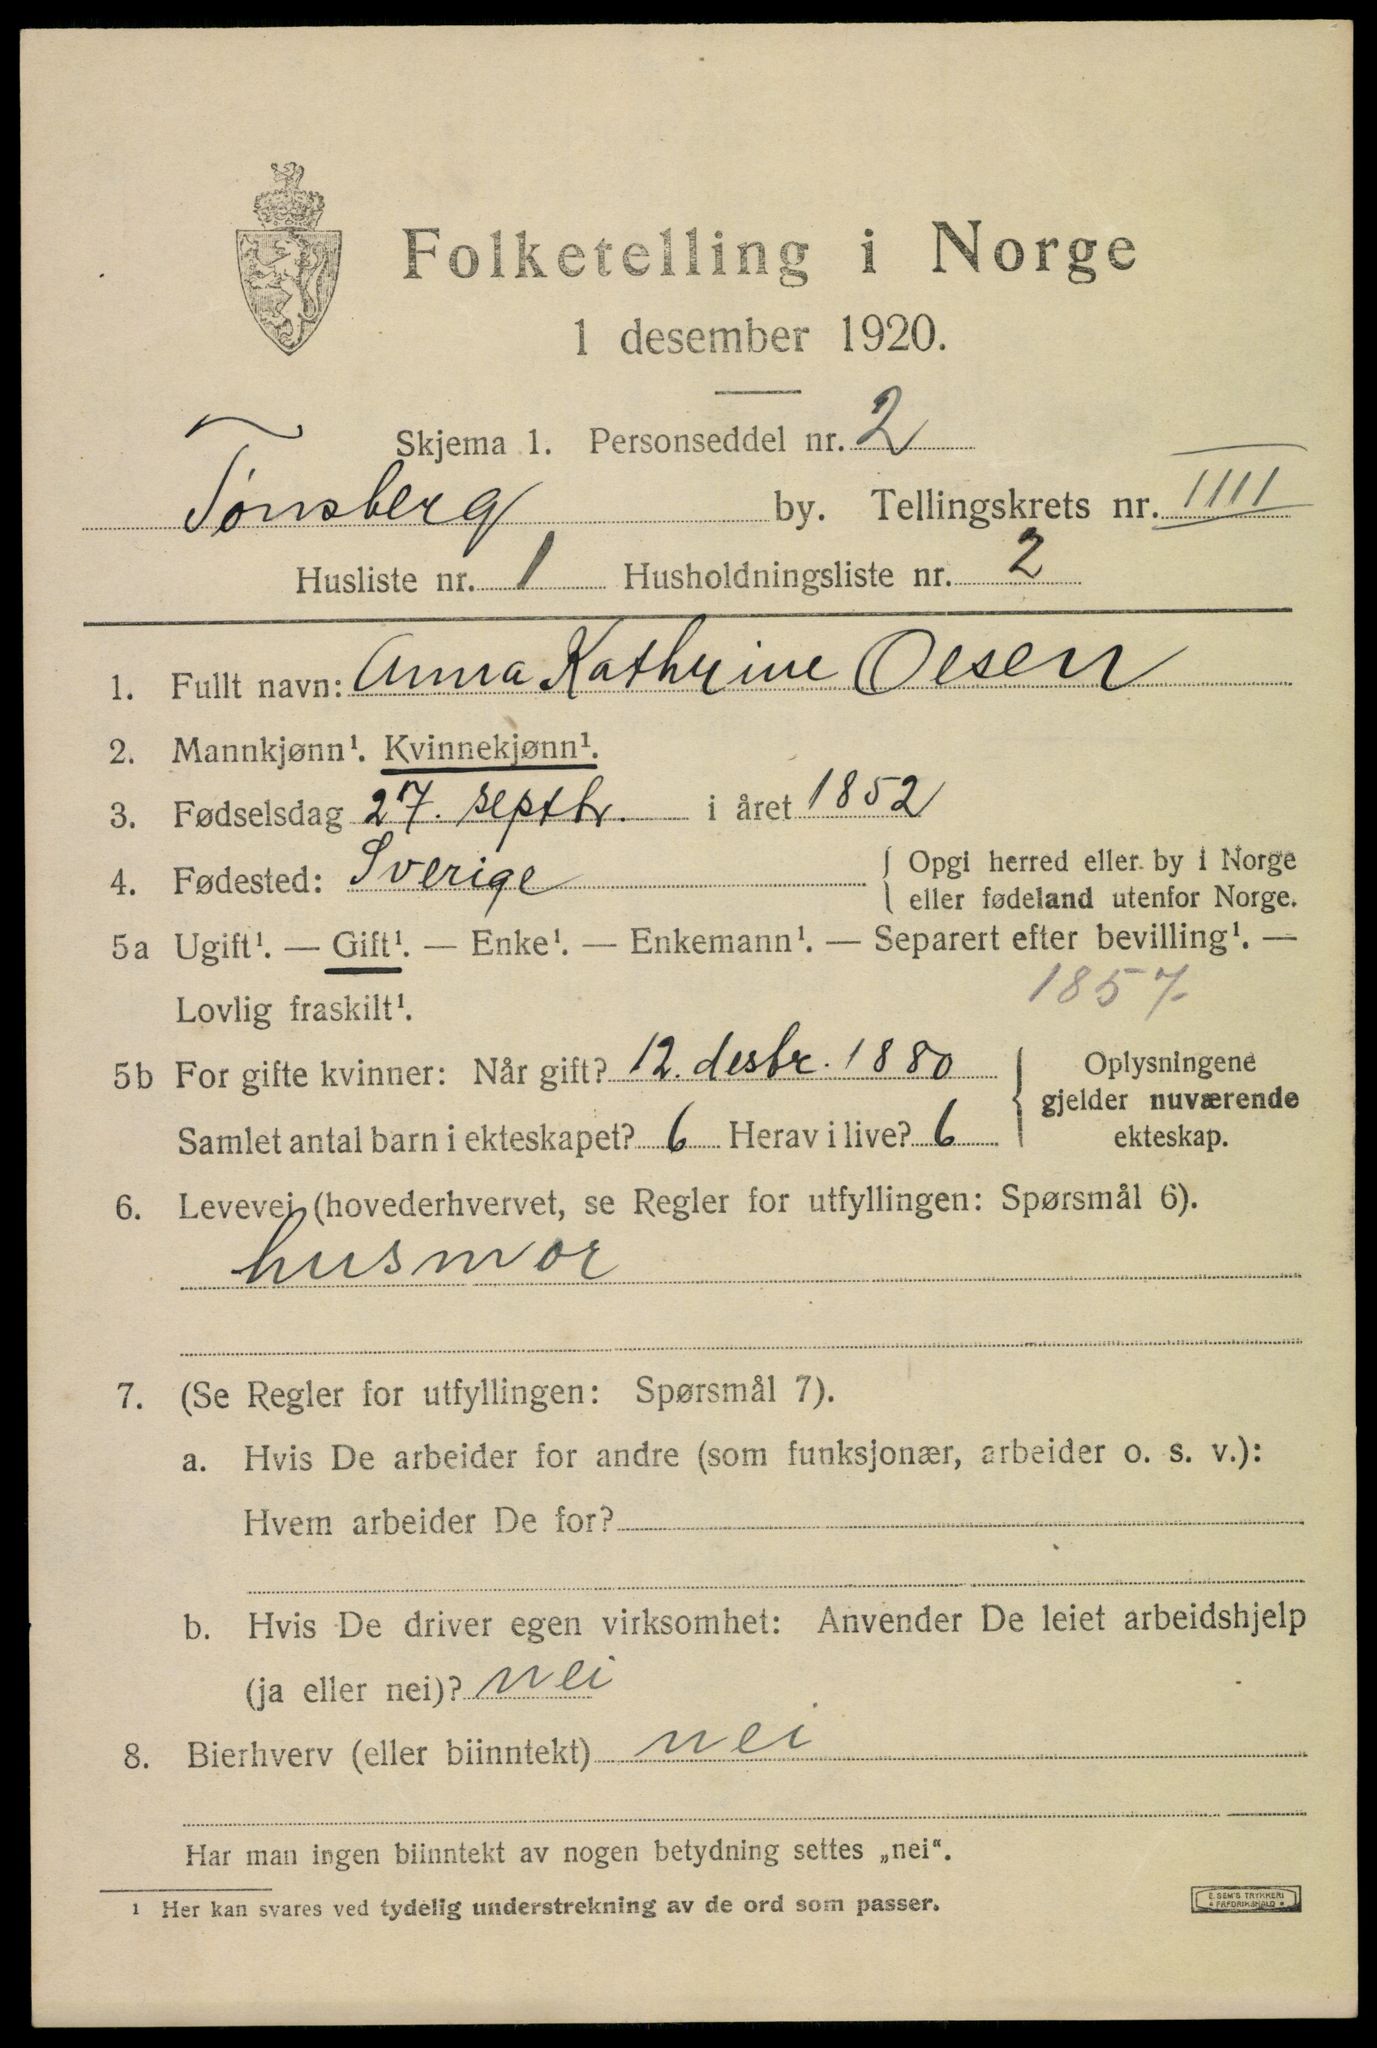 Folketelling i Norge
1 desember 1920.
Skjema 1. Personseddel nr. 2
Tønsberg by. Tellingskrets nr. IIII
Husliste nr. 1 Husholdningsliste nr. 2
1. Fullt navn: Anna Kathrine Olsen
2. Mannkjønn¹. Kvinnekjønn¹.
3. Fødselsdag 27. septbr. i året 1852
4. Fødested: Sverige { Opgi herred eller by i Norge
eller fødeland utenfor Norge.
5a Ugift¹. — Gift¹. — Enke¹. — Enkemann¹. — Separert efter bevilling¹. —
Lovlig fraskilt¹. 1857.
5b For gifte kvinner: Når gift? 12. desbr. 1880
Samlet antal barn i ekteskapet? 6 Herav i live? 6
{ Oplysningene
gjelder nuværende
ekteskap.
6. Levevei (hovederhvervet, se Regler for utfyllingen: Spørsmål 6).
husmor
7. (Se Regler for utfyllingen: Spørsmål 7).
a. Hvis De arbeider for andre (som funksjonær, arbeider o. s. v.):
Hvem arbeider De for?
b. Hvis De driver egen virksomhet: Anvender De leiet arbeidshjelp
(ja eller nei)? nei
8. Bierhverv (eller biinntekt) nei
Har man ingen biinntekt av nogen betydning settes „nei“.
¹ Her kan svares ved tydelig understrekning av de ord som passer.
E. SEM'S TRYKKERI
* FREDRIKSHALD *